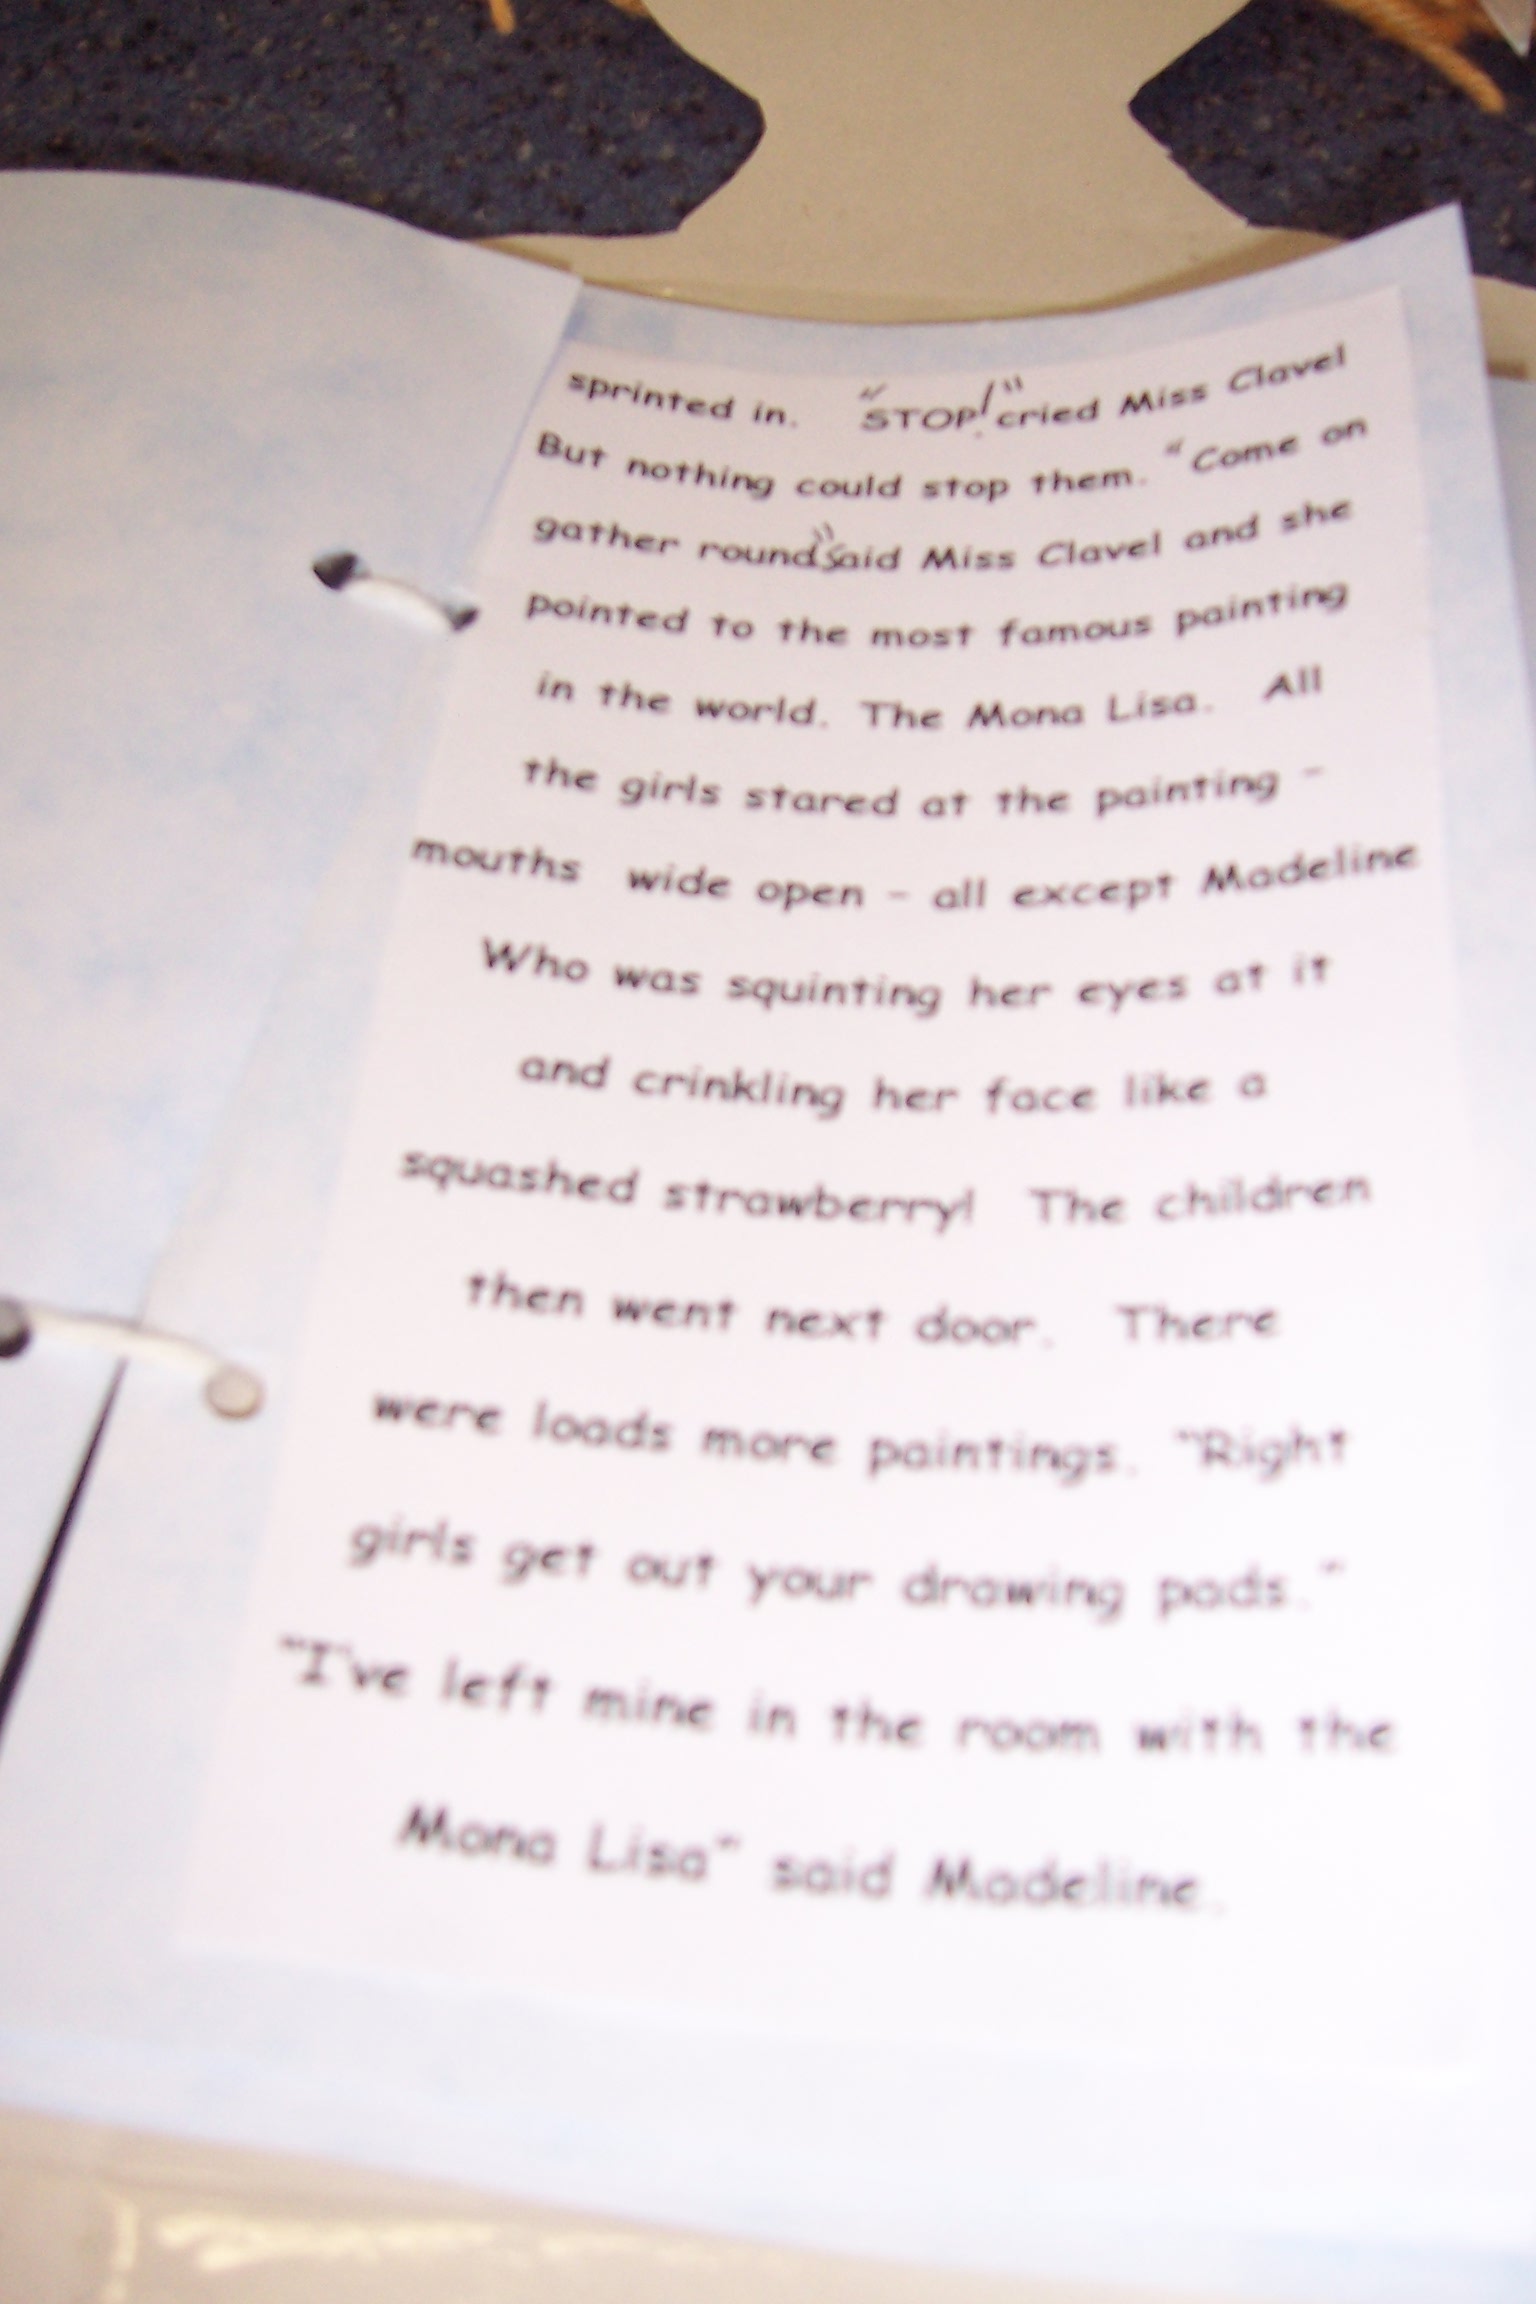 sprinted in. "STOP!" cried Miss Clavel
But nothing could stop them. "Come on
gather round" said Miss Clavel and she
pointed to the most famous painting
in the world. The Mona Lisa. All
the girls stared at the painting -
mouths wide open - all except Madeline
Who was squinting her eyes at it
and crinkling her face like a
squashed strawberry! The children
then went next door. There
were loads more paintings. "Right
girls get out your drawing pads."
"I've left mine in the room with the
Mona Lisa" said Madeline.